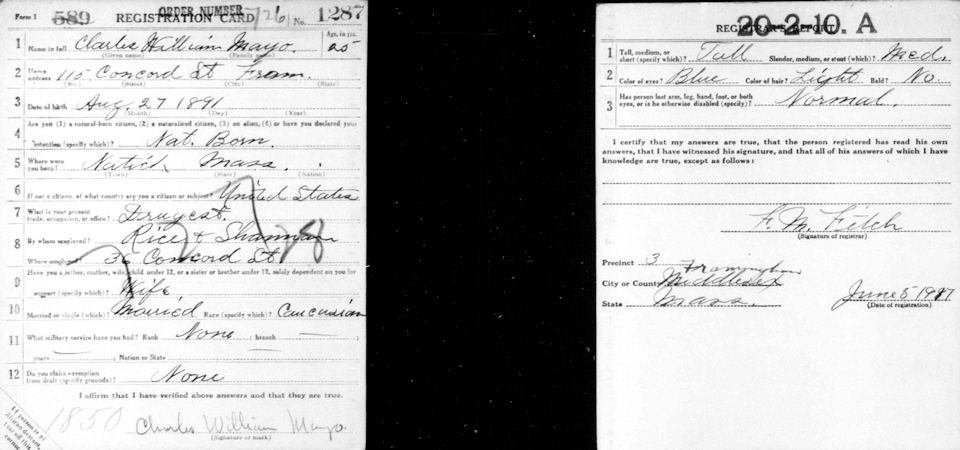 Form 1 589 ORDER NUMBER REGISTRATION CARD 726 No. 1287
1 Name in full Charles William Mayo. Age, in yrs. 25
(Given name) (Family name)
2 Home address 115 Concord St Fram.
(No.) (Street) (City) (State)
3 Date of birth Aug. 27 1891
(Month) (Day) (Year)
4 Are you (1) a natural-born citizen, (2) a naturalized citizen, (3) an alien, (4) or have you declared your
intention (specify which)? Nat. Born.
5 Where were you born? Natick Mass.
(Town) (State) (Nation)
6 If not a citizen, of what country are you a citizen or subject? United States
7 What is your present trade, occupation, or office? Drugest.
8 By whom employed? Rice &
Where employed? 36 Concord St
9 Have you a father, mother, wife, child under 12, or a sister or brother under 12, solely dependent on you for
support (specify which)? Wife
10 Married or single (which)? Married Race (specify which)? Caucusian
11 What military service have you had? Rank None ; branch ;
years ; Nation or State
12 Do you claim exemption from draft (specify grounds)? None
I affirm that I have verified above answers and that they are true.
1850 Charles William Mayo.
(Signature or mark)
If person is of African descent, tear off this corner
20-2-10. A
REGISTRAR'S REPORT
1 Tall, medium, or short (specify which)? Tall Slender, medium, or stout (which)? Med.
2 Color of eyes? Blue Color of hair? Light Bald? No
3 Has person lost arm, leg, hand, foot, or both eyes, or is he otherwise disabled (specify)? Normal.
I certify that my answers are true, that the person registered has read his own
answers, that I have witnessed his signature, and that all of his answers of which I have
knowledge are true, except as follows:
F. M. Fitch
(Signature of registrar)
Precinct 3
Framingham
City or County Middlesex
State Mass.
June 5 1917
(Date of registration)